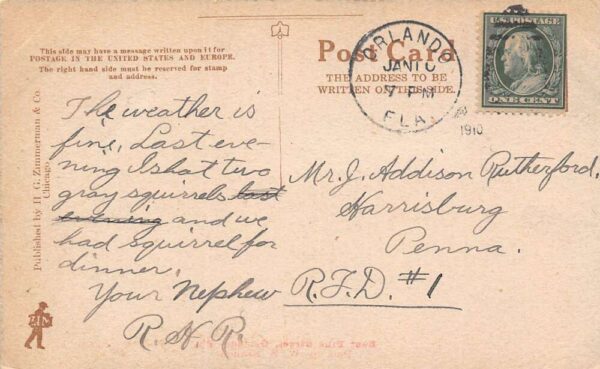 This side may have a message written upon it for
POSTAGE IN THE UNITED STATES AND EUROPE.
The right hand side must be reserved for stamp
and address.
Post Card
THE ADDRESS TO BE
WRITTEN ON THIS SIDE.
ORLANDO
JAN 10
7 PM
FLA.
1910
U.S. POSTAGE
ONE CENT
Published by H. G. Zimmerman & Co
Chicago
The weather is
fine. Last eve-
ning I shot two
gray squirrels last
evening and we
had squirrel for
dinner.
Your Nephew
R.H.R.
Mr. J. Addison Rutherford.
Harrisburg
Penna.
R.F.D. #1
ZIM